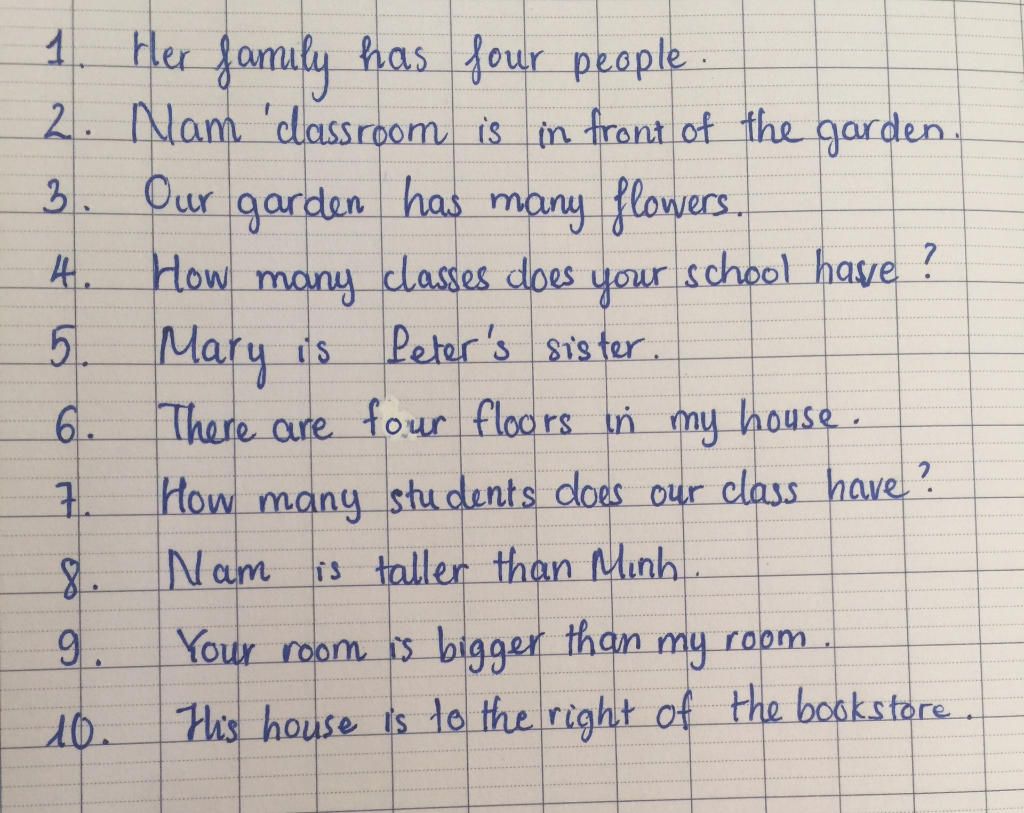 1. Her family has four people.
2. Nam 'classroom is in front of the garden.
3. Our garden has many flowers.
4. How many classes does your school have ?
5. Mary is Peter's sister.
6. There are four floors in my house.
7. How many students does our class have ?
8. Nam is taller than Minh.
9. Your room is bigger than my room.
10. His house is to the right of the bookstore.